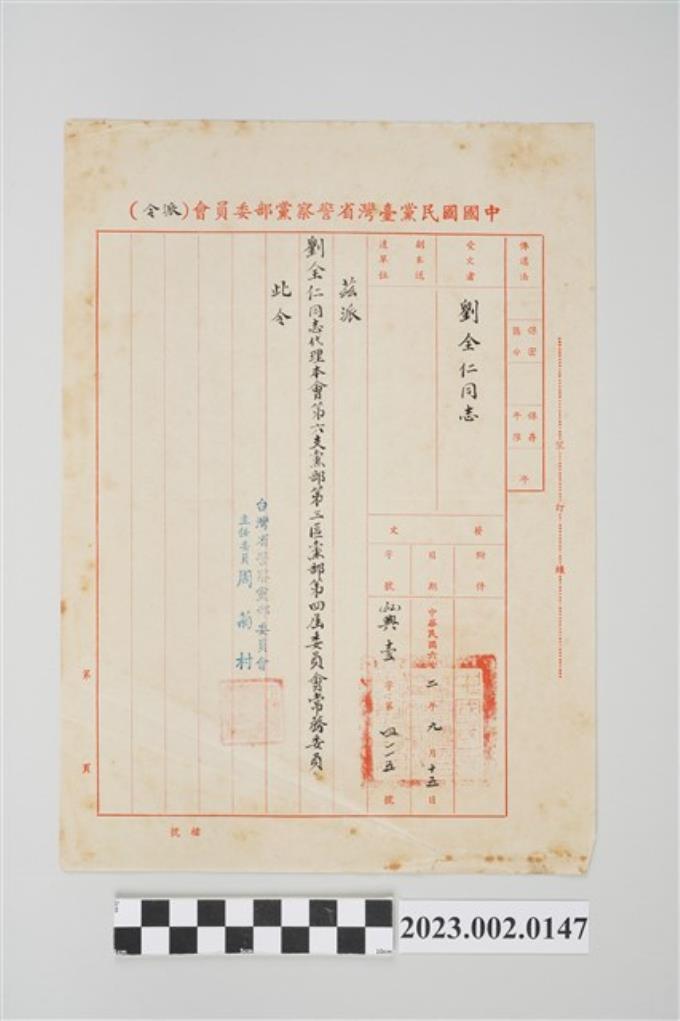 中國國民黨臺灣省警察黨部委員會(派令)
傳遞法
保密區分
保存年限
年
裝
訂
線
受文者
劉全仁同志
副本送達單位
發文
附件
日期
中華民國六二年九月十五日
字號
興壹字第四一一五號
茲派
劉全仁同志代理本會第六支黨部第三區黨部第四屆委員會常務委員
此令
台灣省警察黨部委員會
主任委員 周菊村
第 頁
檔號
2023.002.0147